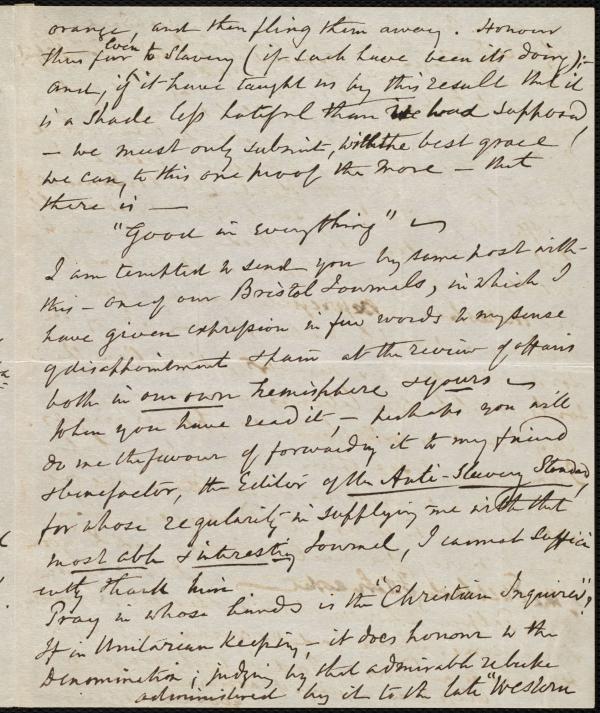 orange, and then fling them away. Honour
thus far even to Slavery (if such have been its doing);—
and, if it have taught us by this result that it
is a shade less hateful than we had supposed,
— we must only submit, with the best grace
we can, to this one proof the more — that
there is —
"Good in everything" —
I am tempted to send you by same post with
this — one of our Bristol Journals, in which I
have given expression in few words to my sense
of disappointment & pain at the review of affairs
both in our own hemisphere & yours —
When you have read it, — perhaps you will
do me the favour of forwarding it to my friend
& benefactor, the Editor of the Anti-Slavery Standard,
for whose regularity in supplying me with that
most able & interesting Journal, I cannot suffici
ently thank him.
Pray in whose hands is the "Christian Inquirer"?
If in Unitarian keeping, — it does honour to the
Denomination; judging by that admirable rebuke
administered by it to the late "Western